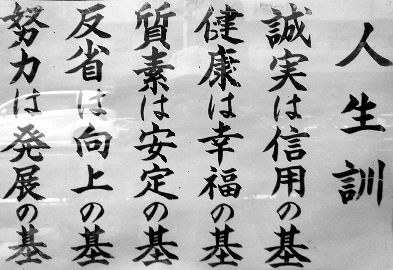 人生訓
誠実は信用の基
健康は幸福の基
質素は安定の基
反省は向上の基
努力は発展の基